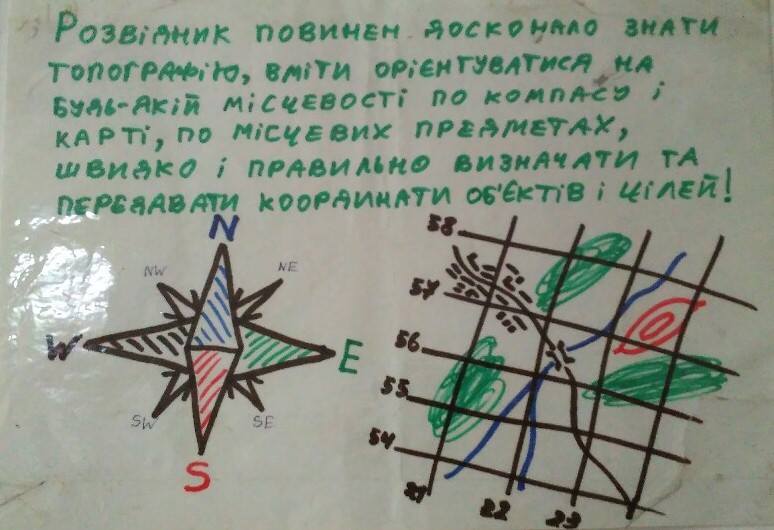 Розвідник повинен досконало знати
топографію, вміти орієнтуватися на
будь-якій місцевості по компасу і
карті, по місцевих предметах,
швидко і правильно визначати та
передавати координати об'єктів і цілей!
N
NW
NE
W
E
SW
SE
S
58
57
56
55
54
21
22
23